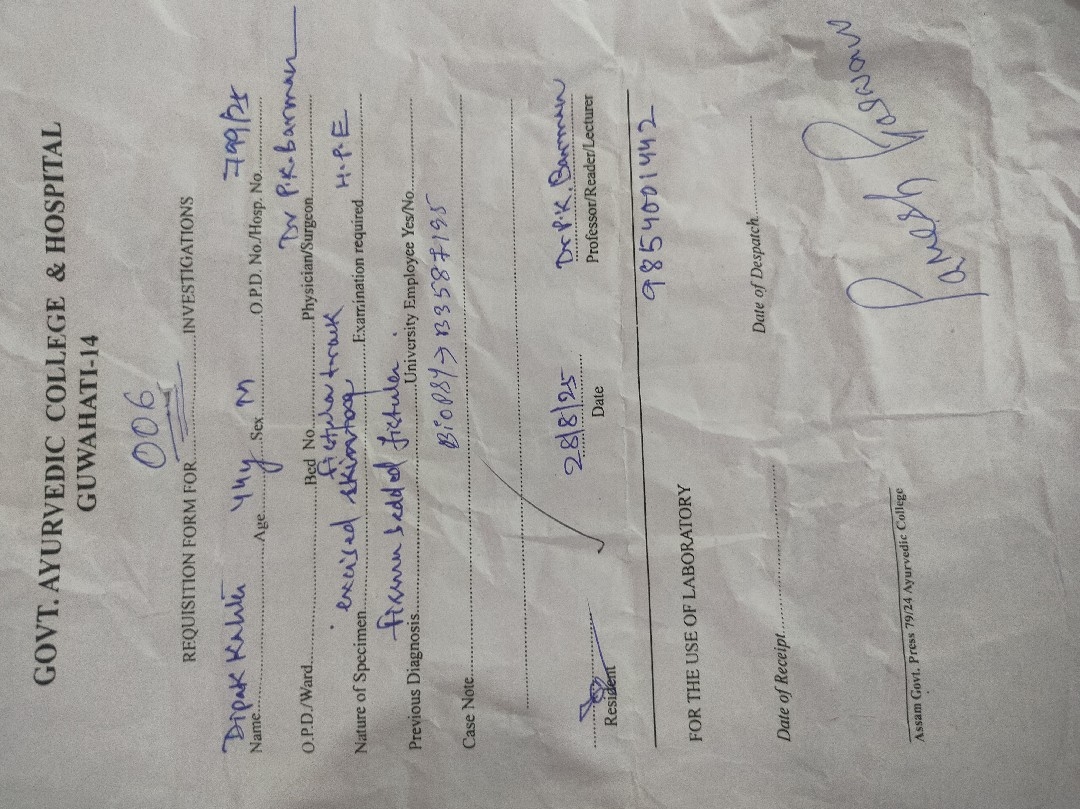 GOVT. AYURVEDIC COLLEGE & HOSPITAL
GUWAHATI-14
006
REQUISITION FORM FOR..........INVESTIGATIONS
Name Dipak Kalita Age 44y Sex M O.P.D. No./Hosp. No. 799/25
O.P.D./Ward..........Bed No..........Physician/Surgeon Dr P.K. Barman
Nature of Specimen excised skin tag fistula track Examination required H.P.E
Previous Diagnosis fissure bedded fistula University Employee Yes/No
Case Note BIOPSY → B3587195
28/8/25 Dr P.K. Barman
Resident Date Professor/Reader/Lecturer
9854001442
FOR THE USE OF LABORATORY
Date of Receipt..........Date of Despatch
Assam Govt. Press 79/24 Ayurvedic College